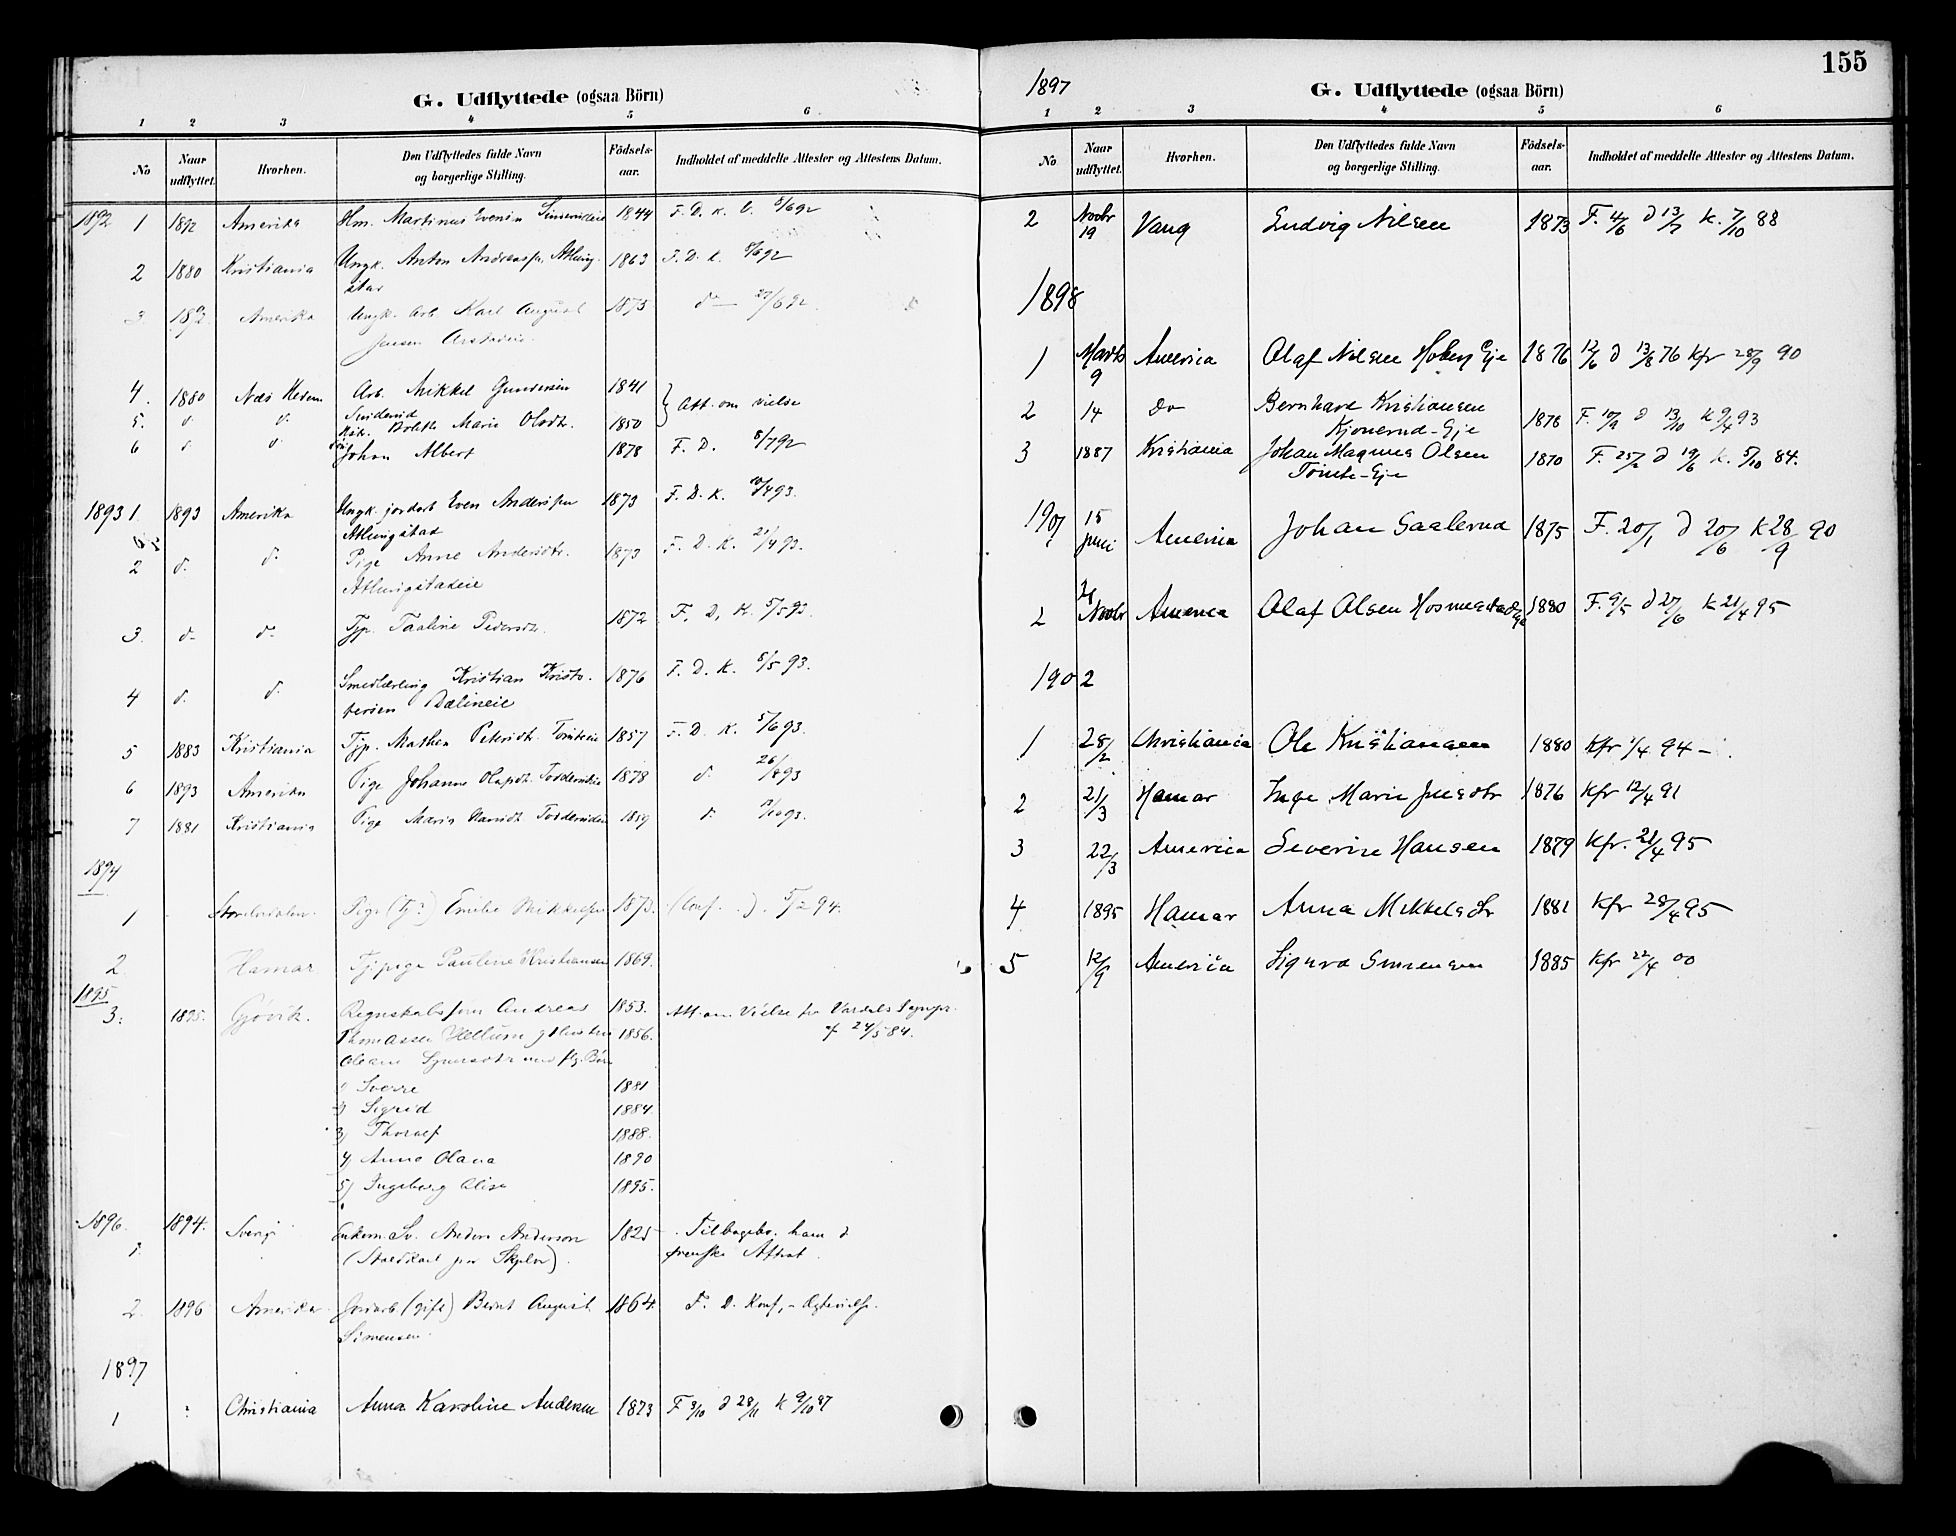 G. Udflyttede (ogsaa Börn)
1 2 3 4 5 6
No Naar udflyttet. Hvorhen. Den Udflyttedes fulde Navn og borgerlige Stilling. Födsels-aar. Indholdet af meddelte Attester og Attestens Datum.
1892 1 1892 Amerika Hm. Martinus Evensen 1844 F. D. K. V. 8/6 92
2 1880 Kristiania Ungk. Anton Andreassen Atlung- 1863 F. D. K. 8/6 92
stad
3 1892 Amerika Ungk. Arb. Karl August 1873 do 27/6 92
Jensen
4. 1880 Næs Hedem Arb. Mikkel Gundersen 1841
5. d. d. Marie Olsdtr. 1850 Att. om vielse
6 d. d. Johan Albert 1878 F. D. 8/7 92
1893 1. 1893 Amerika Ungk. jordarb Even Anderssen 1873 F. D. K. 93.
Atlungstad
2 d. d. Pige Anne Andersdtr. 1873 F. D. K. 21/4 93.
Atlungstadeie
3. d. d. Tjp. Paaline Pedersdtr. 1872 F. D. K. 5/5 93.
4 d. d. Smedlærling Kristian Kristo- 1876 F. D. K. 8/5 93.
fersen Dælineie
5 1883 Kristiania Tjp. Mathea Petersdtr. Tömteeie 1857 F. D. K. 5/6 93.
6 1893 Amerika Pige Johanne Olapdtr. 1878 d. 26/8 93
7 1881 Kristiania Pige Maria 1859 d. 93.
1894
1 Pige Emilie Mikkelsen 1873. (Conf. ). 5/2 94.
2. Hamar Tjpige Pauline Kristiansen 1869.
1895
3. 1895. Gjövik. Regnskabsfører Andreas 1853. Att. om Vielse fra Vardals Sognepr.
Thomassen Hellum og Hustru 1856. af 24/5 84.
Oleane med flg. Börn
1) Sverre 1881
2) Sigrid 1884.
3) Thoralf 1888.
4) Anna Olava 1890
5) Ingeborg Elise 1895.
1896. 1. 1894. Sverige Enkem. Sv. Anders Anderson 1825 Tilbagelev. ham d
svenske Attest.
2. 1896 Amerika Jordarb (gift) Bernt August 1864. F. D. Konf,
Simensen.
1897
1 Christiania Anna Karoline Andersen 1873 F 3/10 d 28/11 K 9/10 87
155
1897
G. Udflyttede (ogsaa Börn)
1 2 3 4 5 6
No Naar udflyttet. Hvorhen. Den Udflyttedes fulde Navn og borgerlige Stilling. Födsels-aar. Indholdet af meddelte Attester og Attestens Datum.
2 Novbr 19 Vang Ludvig Nilsen 1873 F. 4/6 d 13/7 K. 7/10 88
1898
1 Marts 9 America Olaf Nilsen Eje 1876 12/6 d 13/8 76 Kfr 28/9 90
2 14 Do Bernhard Kristiansen 1878 F. 10/9 d 13/10 K 9/4 93
Kjonerud-Eje
3 1887 Kristiania Johan Magnus Olsen 1870 F. 25/2 d 19/6 K. 5/10 84.
Tömte-Eje
1901 1 15 Juni America Johan Saalerud 1875 F. 20/1 d 20/6 K 28/9 90
2 Novbr America Olaf Olsen Hosmestad Eje 1880 F. 9/5 d 27/6 K 21/4 95
1902
1 28/2 Christiania Ole Kristiansen 1880 Kfr 1/4 94 -
2 21/3 Hamar Inge Marie Jensdtr 1876 Kfr 12/4 91
3 22/3 America Severine Hansen 1879 Kfr. 21/4 95
4 1895 Hamar Anna Mikkelsdtr 1881 Kfr 28/4 95
5 12/9 America Sigurd Simensen 1885 Kfr 22/4 00